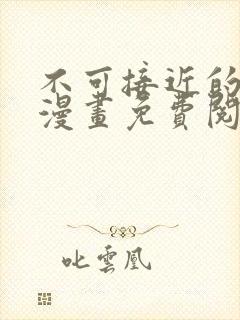 不可接近的
漫畫免費閱
叱雲凰